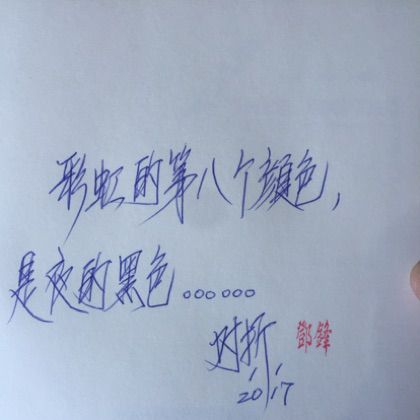 彩虹的第八个颜色，
是夜的黑色……
对折 鄧鋒
2017